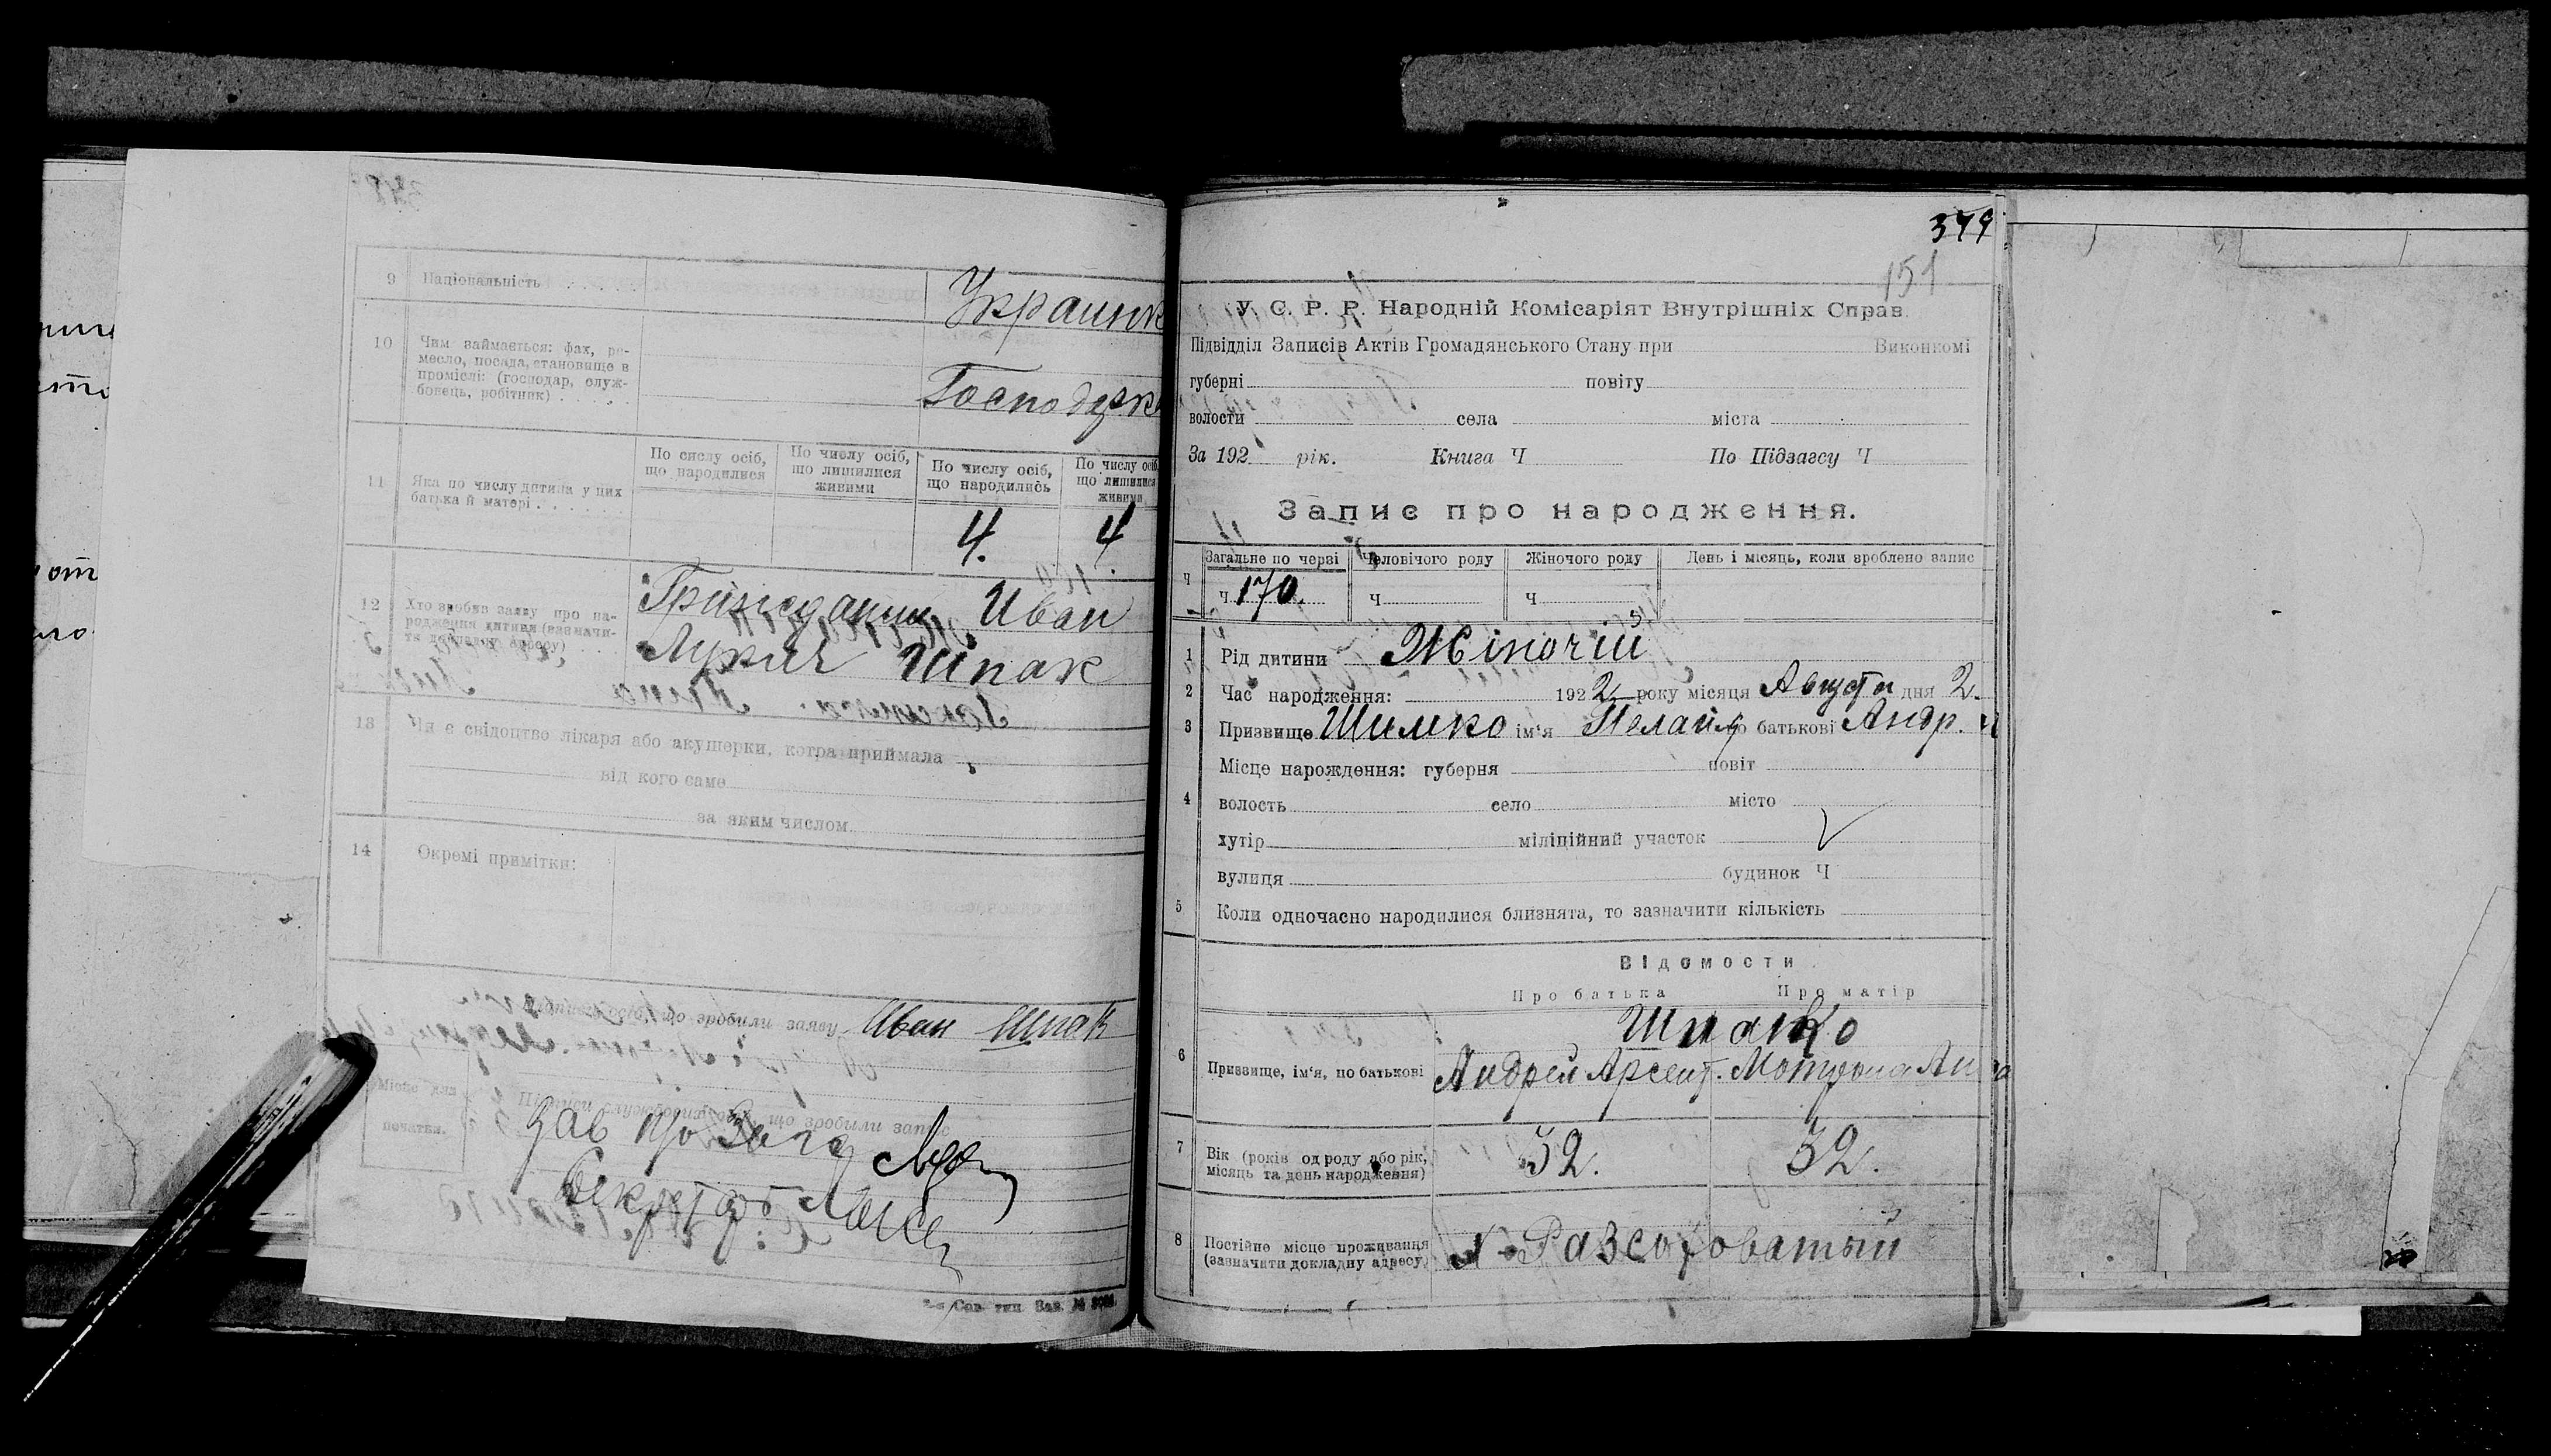 9 Національність Украинк
10 Чим займається: фах, ре-
месло, посада, становище в
промислі: (господар, служ-
бовець, робітник)
Господарка
По сислу осіб, що народилися
По числу осіб, що лишилися живими
По числу осіб, що народились
По числу осіб, що лишилися живими
11 Яка по числу дитина у цих
батька й матері
4. 4.
12 Хто зробив заяву про на-
родження дитини (зазначи-
ти докладну адресу)
Гражданин Иван
Лукич Шпак
13 Чи є свідоцтво лікаря або акушерки, котра приймала
від кого саме
за яким числом
14 Окремі примітки:
що зробили заяву Иван Шпак
Місце для
печатки.
що зробили запис
Зав
Секретарь
379
151
У. С. Р. Р. Народній Комісаріят Внутрішніх Справ.
Підвідділ Записів Актів Громадянського Стану при Виконкомі
губерні повіту
волости села міста
За 192 рік. Книга Ч По Підзагсу Ч
Запис про народження.
Загальне по черзі Человічого роду Жіночого роду День і місяць, коли зроблено запис
Ч ч 170. ч ч
1 Рід дитини Жіночій
2 Час народження: 1922 року місяця Августа дня 2.
3 Призвище Шимко ім'я Пелагія по батькові Андр.
Місце нарождення: губерня повіт
4 волость село місто
хутір міліційний участок
вулиця будинок Ч
5 Коли одночасно народилися близнята, то зазначити кількість
Відомости
Про батька Про матір
6 Призвище, ім'я, по батькові
Андрей Арсент. Мотрона
7 Вік (років од роду або рік,
місяць та день народження)
32. 32.
8 Постійне місце проживання
(зазначити докладну адресу)
х. Разсоховатый